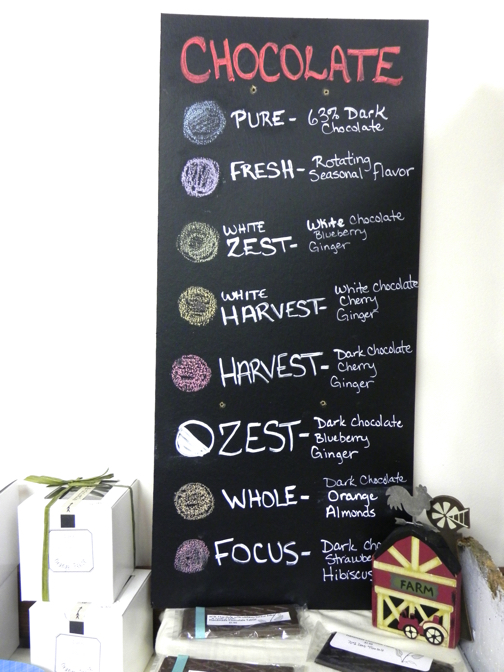 CHOCOLATE
PURE- 63% Dark
Chocolate
FRESH- Rotating
Seasonal flavor
WHITE
ZEST- White Chocolate
Blueberry
Ginger
WHITE
HARVEST- White Chocolate
Cherry
Ginger
HARVEST- Dark Chocolate
Cherry
Ginger
ZEST- Dark Chocolate
Blueberry
Ginger
WHOLE- Dark Chocolate
Orange
Almonds
FOCUS- Dark
Hibiscus
FARM